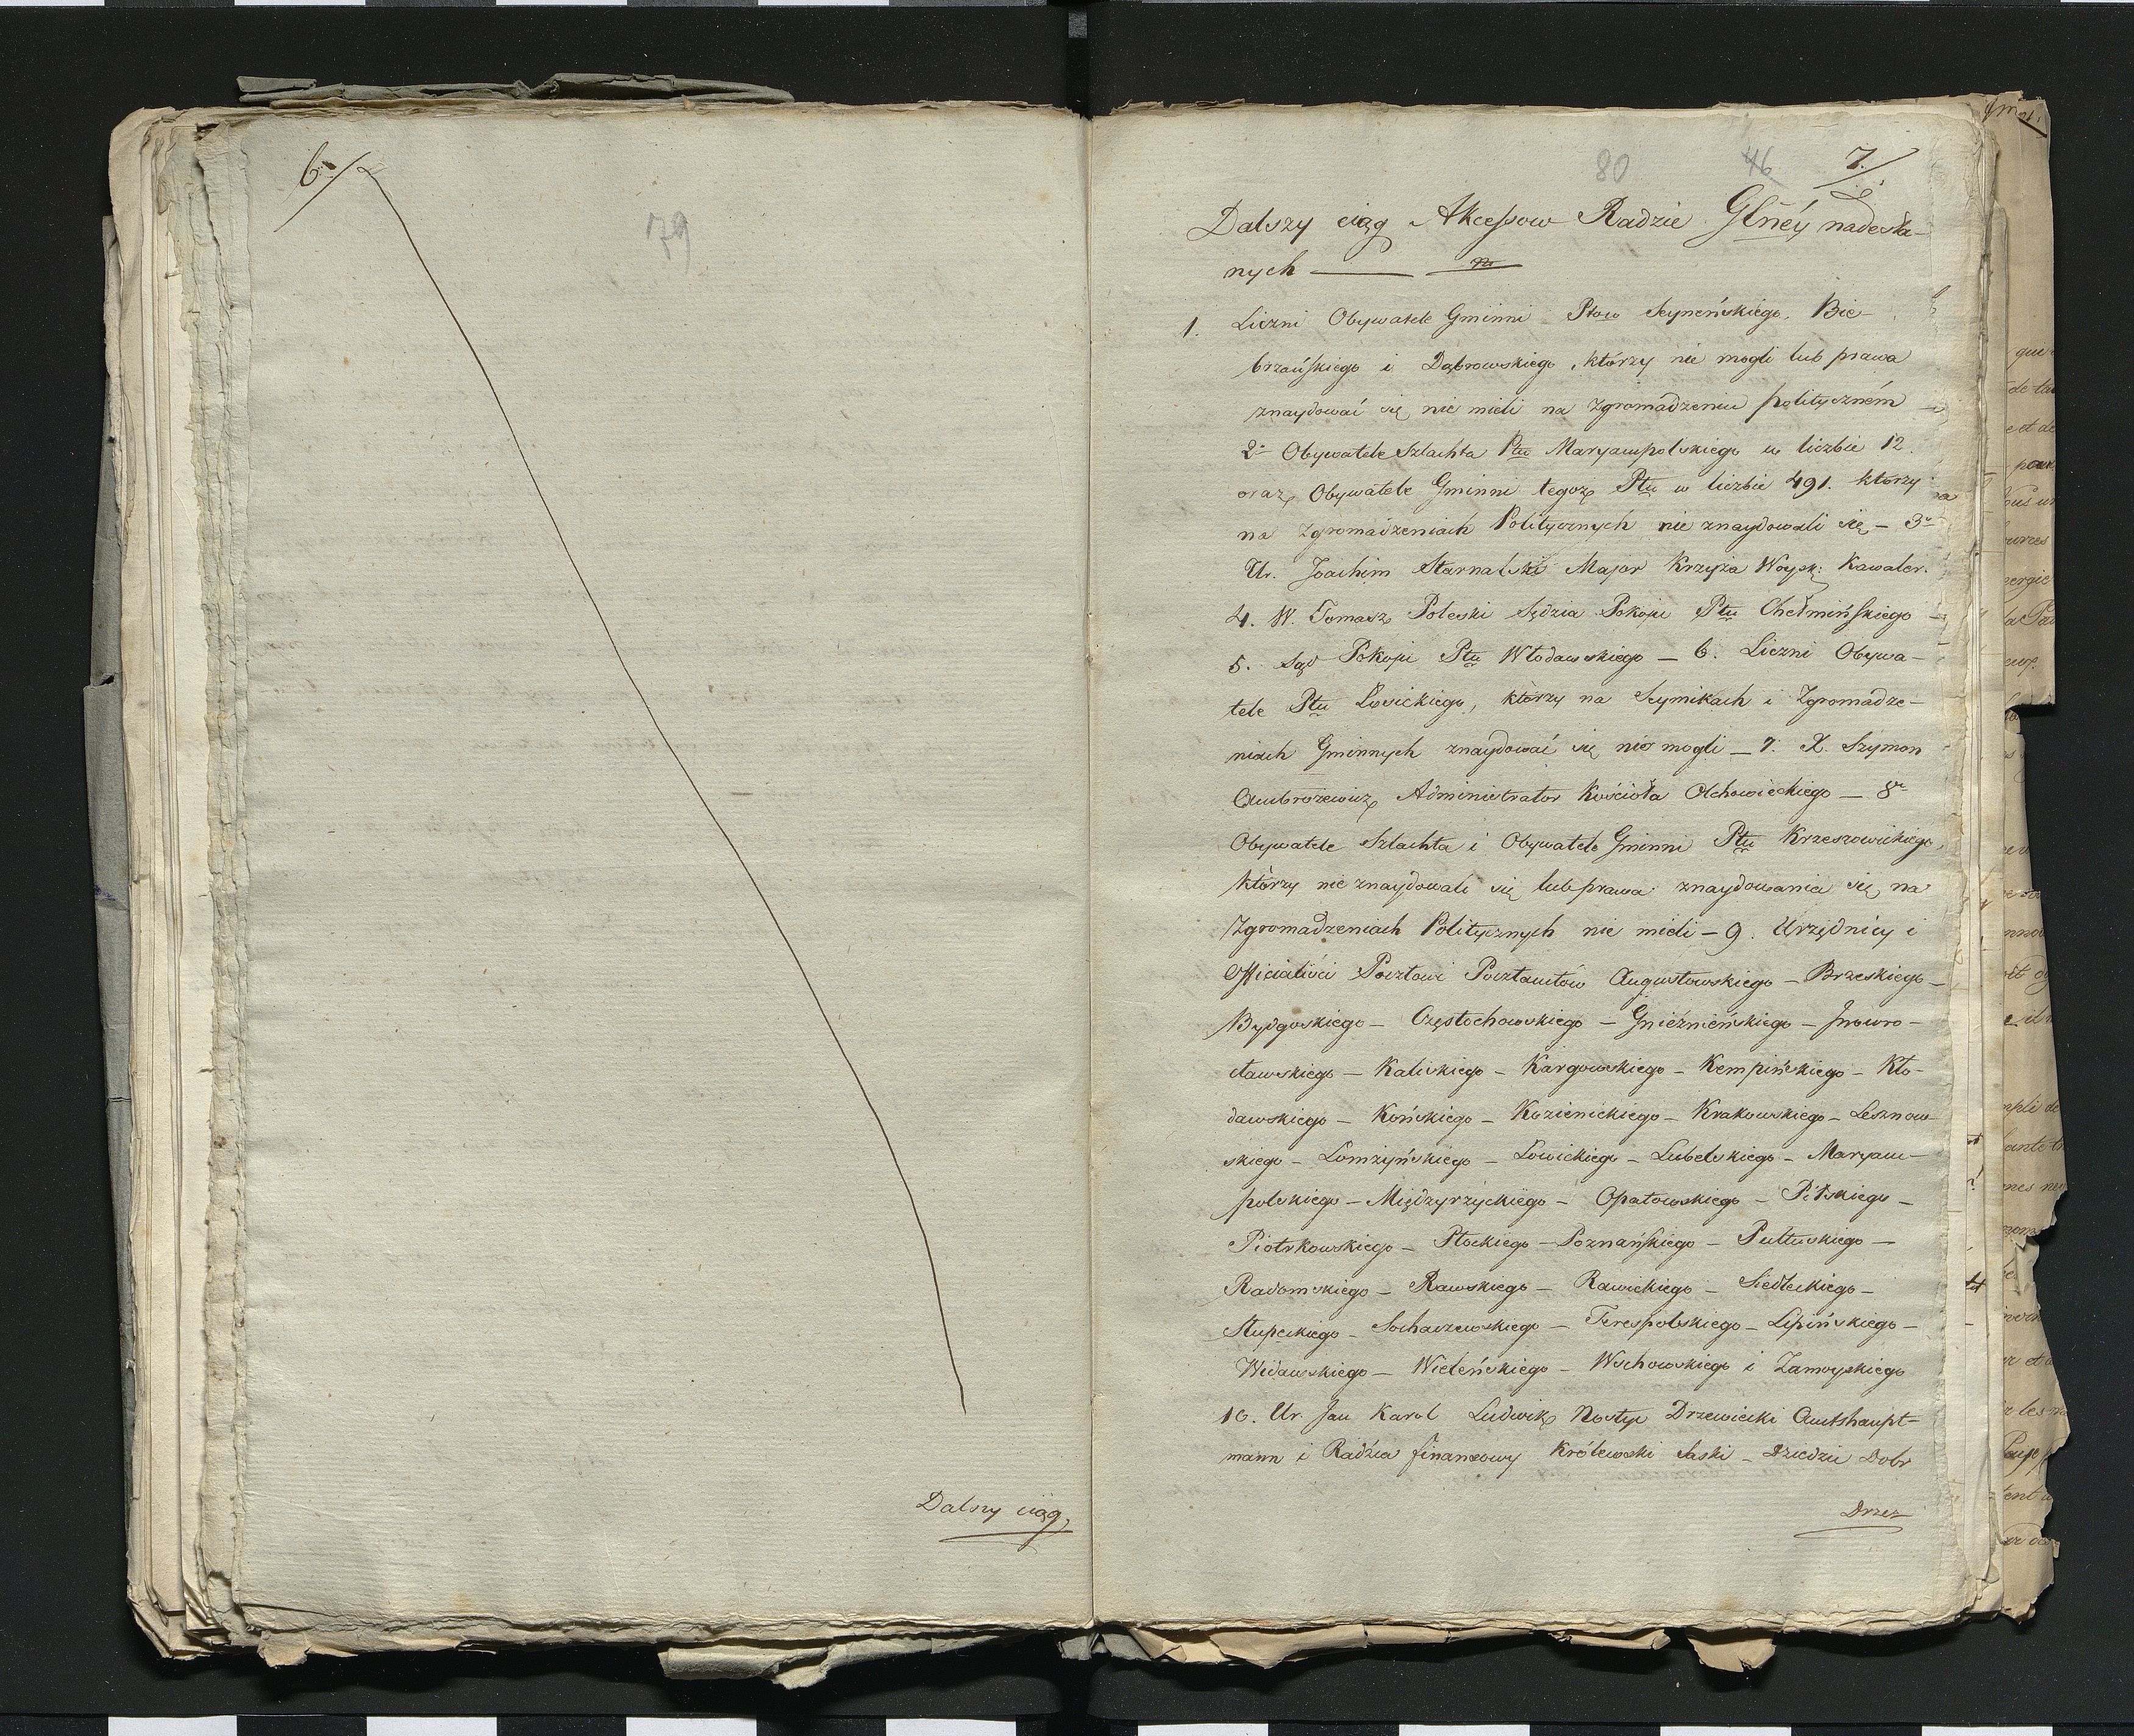 6./
79
Dalszy ciąg
80 46 7./
Dalszy ciąg Akcessow Radzie Glńéy nadesła-
nych
1. Liczni Obywatele Gminni Ptow Seyneńskiego, Bie-
brzańskiego i Dąbrowskiego, którzy nie mogli lub prawa
znaydować się nie mieli na Zgromadzeniu polityczném —
2° Obywatele Szlachta Ptu Maryampolskiego w liczbie 12.
oraz Obywatele Gminni tegoż Ptu w liczbie 491. którzy
na Zgromadzeniach Politycznych nie znaydowali się — 3°
Ur. Joachim Starnalski Major Krzyża Woysk: Kawaler.
4. W. Tomasz Poleski Sędzia Pokoju Ptu Chełmińskiego —
5. Sąd Pokoju Ptu Włodawskiego — 6. Liczni Obywa-
tele Ptu Łowickiego, którzy na Seymikach i Zgromadze-
niach Gminnych znaydować się nie mogli — 7. X. Szymon
Ambrożewicz Administrator Kościoła Olchowieckiego — 8°
Obywatele Szlachta i Obywatele Gminni Ptu Krzeszowickiego,
którzy nie znaydowali się lub prawa znaydowania się na
Zgromadzeniach Politycznych nie mieli — 9. Urzędnicy i
Officialiści Pocztowi Pocztamtów Augustowskiego — Brzeskiego —
Bydgoskiego — Częstochowskiego — Gnieźnieńskiego — Inowro-
cławskiego — Kaliskiego — Kargowskiego — Kempińskiego — Kło-
dawskiego — Końskiego — Kozienickiego — Krakowskiego — Lesznow-
skiego — Łomżyńskiego — Łowickiego — Lubelskiego — Maryam-
polskiego — Międzyrzyckiego — Opatowskiego — Pilskiego —
Piotrkowskiego — Płockiego — Poznańskiego — Pułtuskiego —
Radomskiego — Rawskiego — Rawickiego — Siedleckiego —
Słupeckiego — Sochaczewskiego — Terespolskiego — Lipińskiego —
Widawskiego — Wieleńskiego — Wschowskiego i Zamoyskiego
10. Ur. Jan Karol Ludwik Nostyc Drzewiecki Amtshaupt-
mann i Radźca finansowy Królewski Saski — Dziedzic Dobr
Drzez